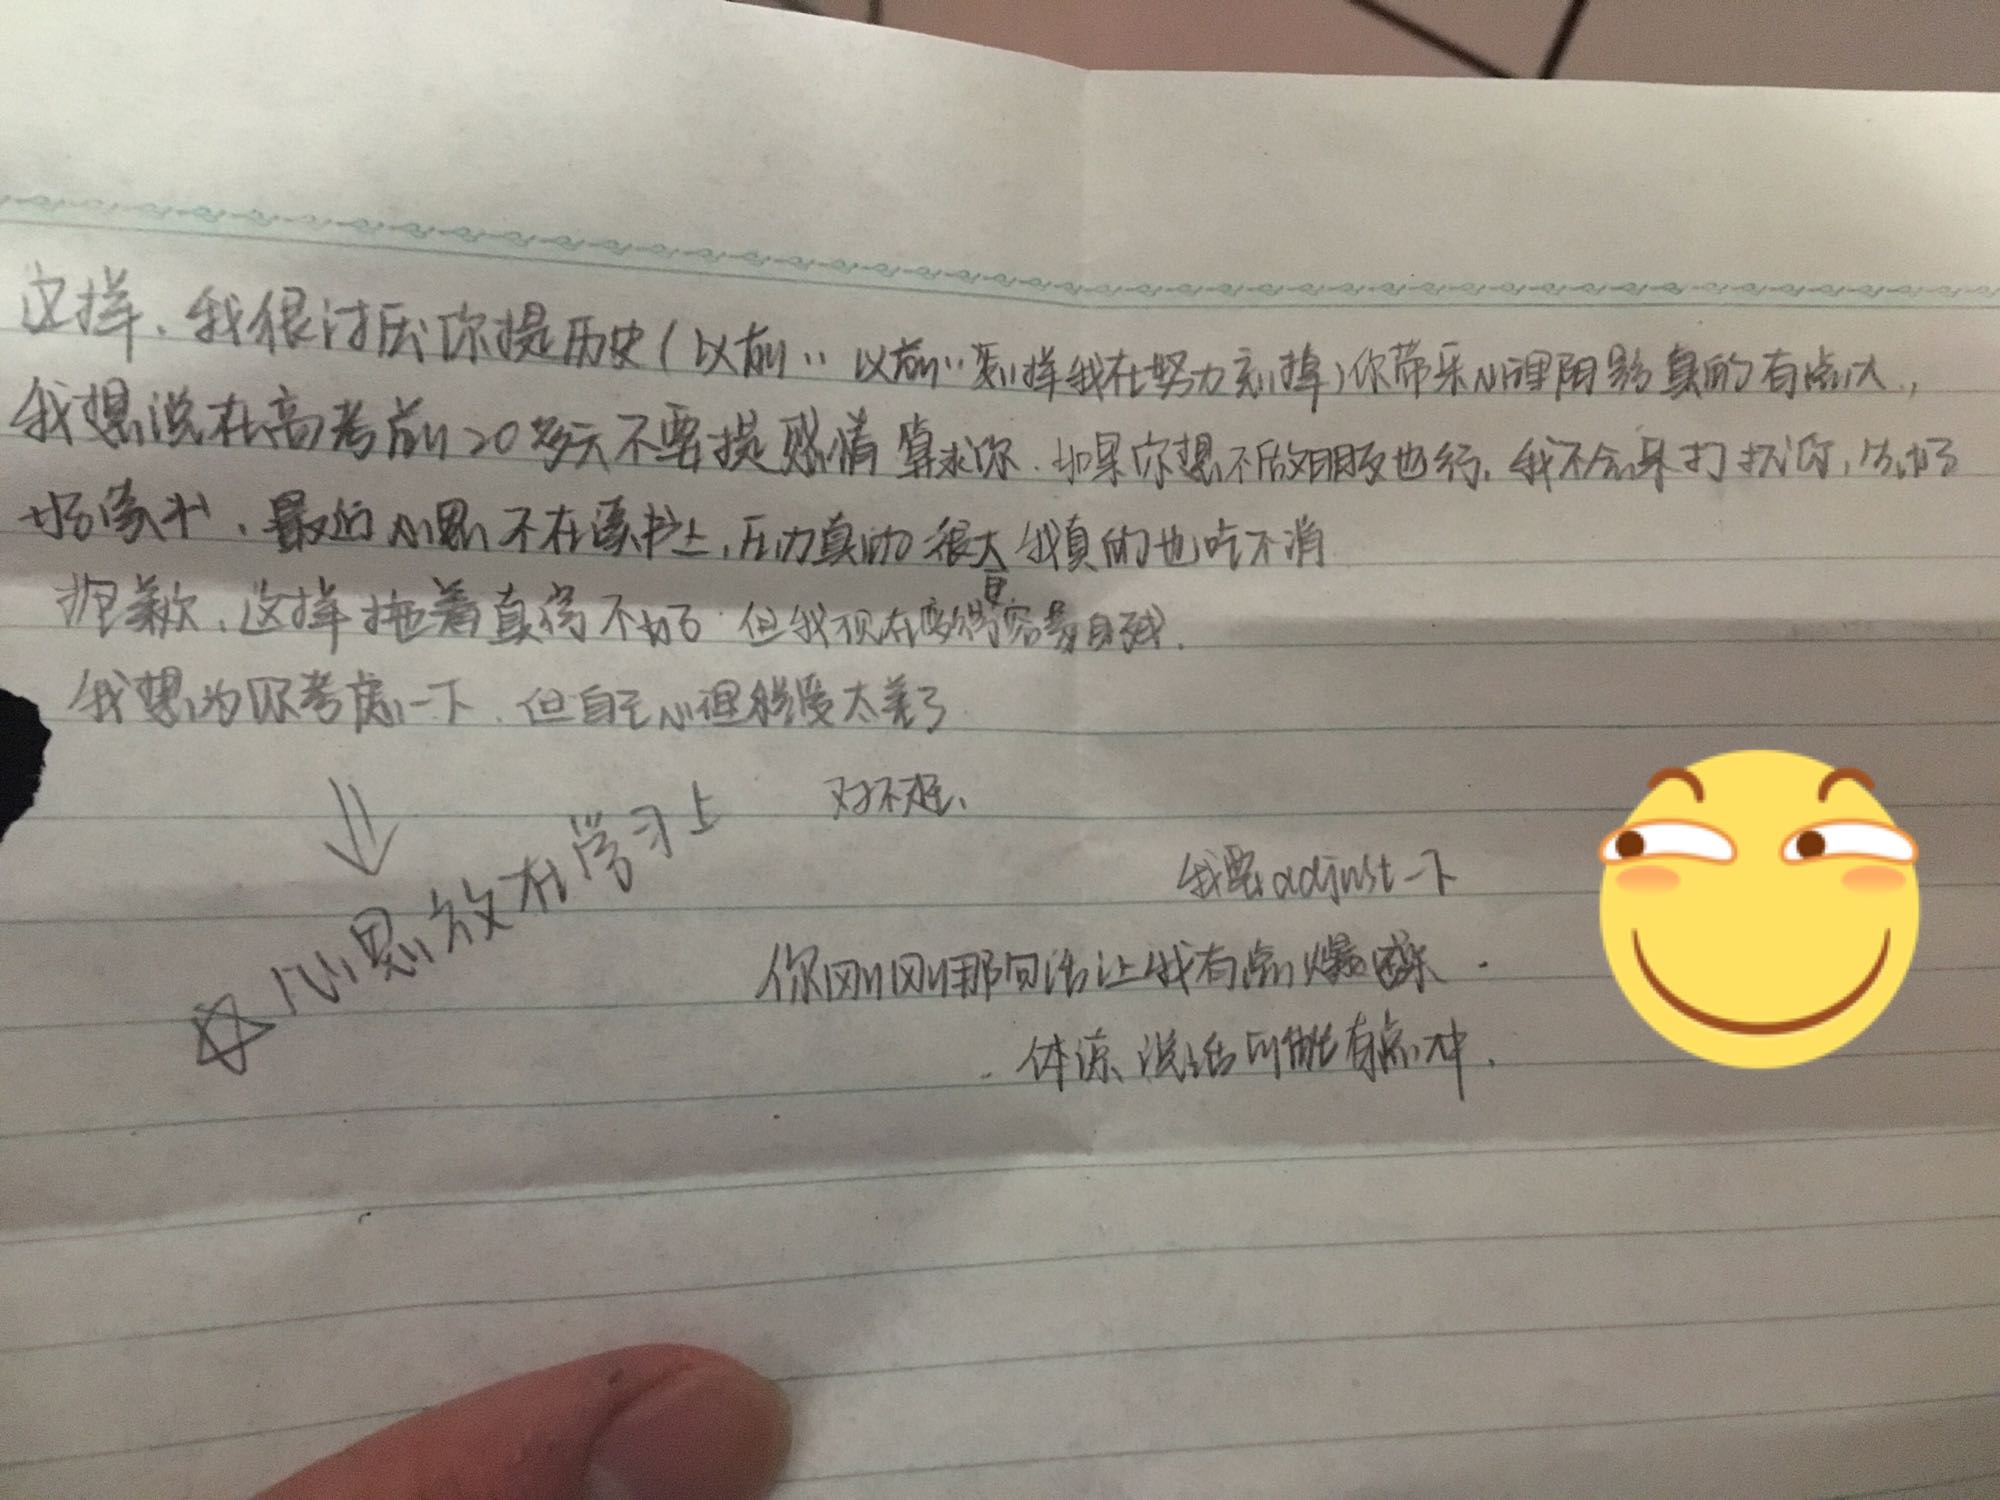 这样,我很讨厌你提历史(以前,, 以前,,怎样我在努力忘掉)你带来心理阴影真的有点大,
我想说在高考前20多天不要提感情 算求你.如果你想不做朋友也行,我不会来打扰你,你好
好读书,最近心思不在读书上,压力真的很大 我真的也吃不消
抱歉,这样拖着真得不好.但我现在变得容易自残.
我想为你考虑一下,但自己心理承受太差了
对不起、
☆ 心思放在学习上
我要adjust一下
你刚刚那句话让我有点爆
体谅、说话可能有点冲.